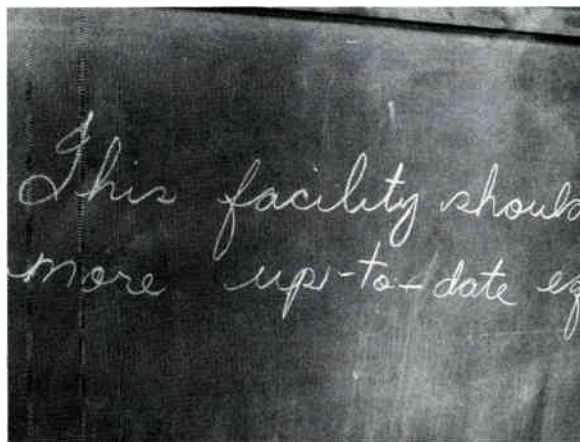 This facility shoul
more up-to-date eq